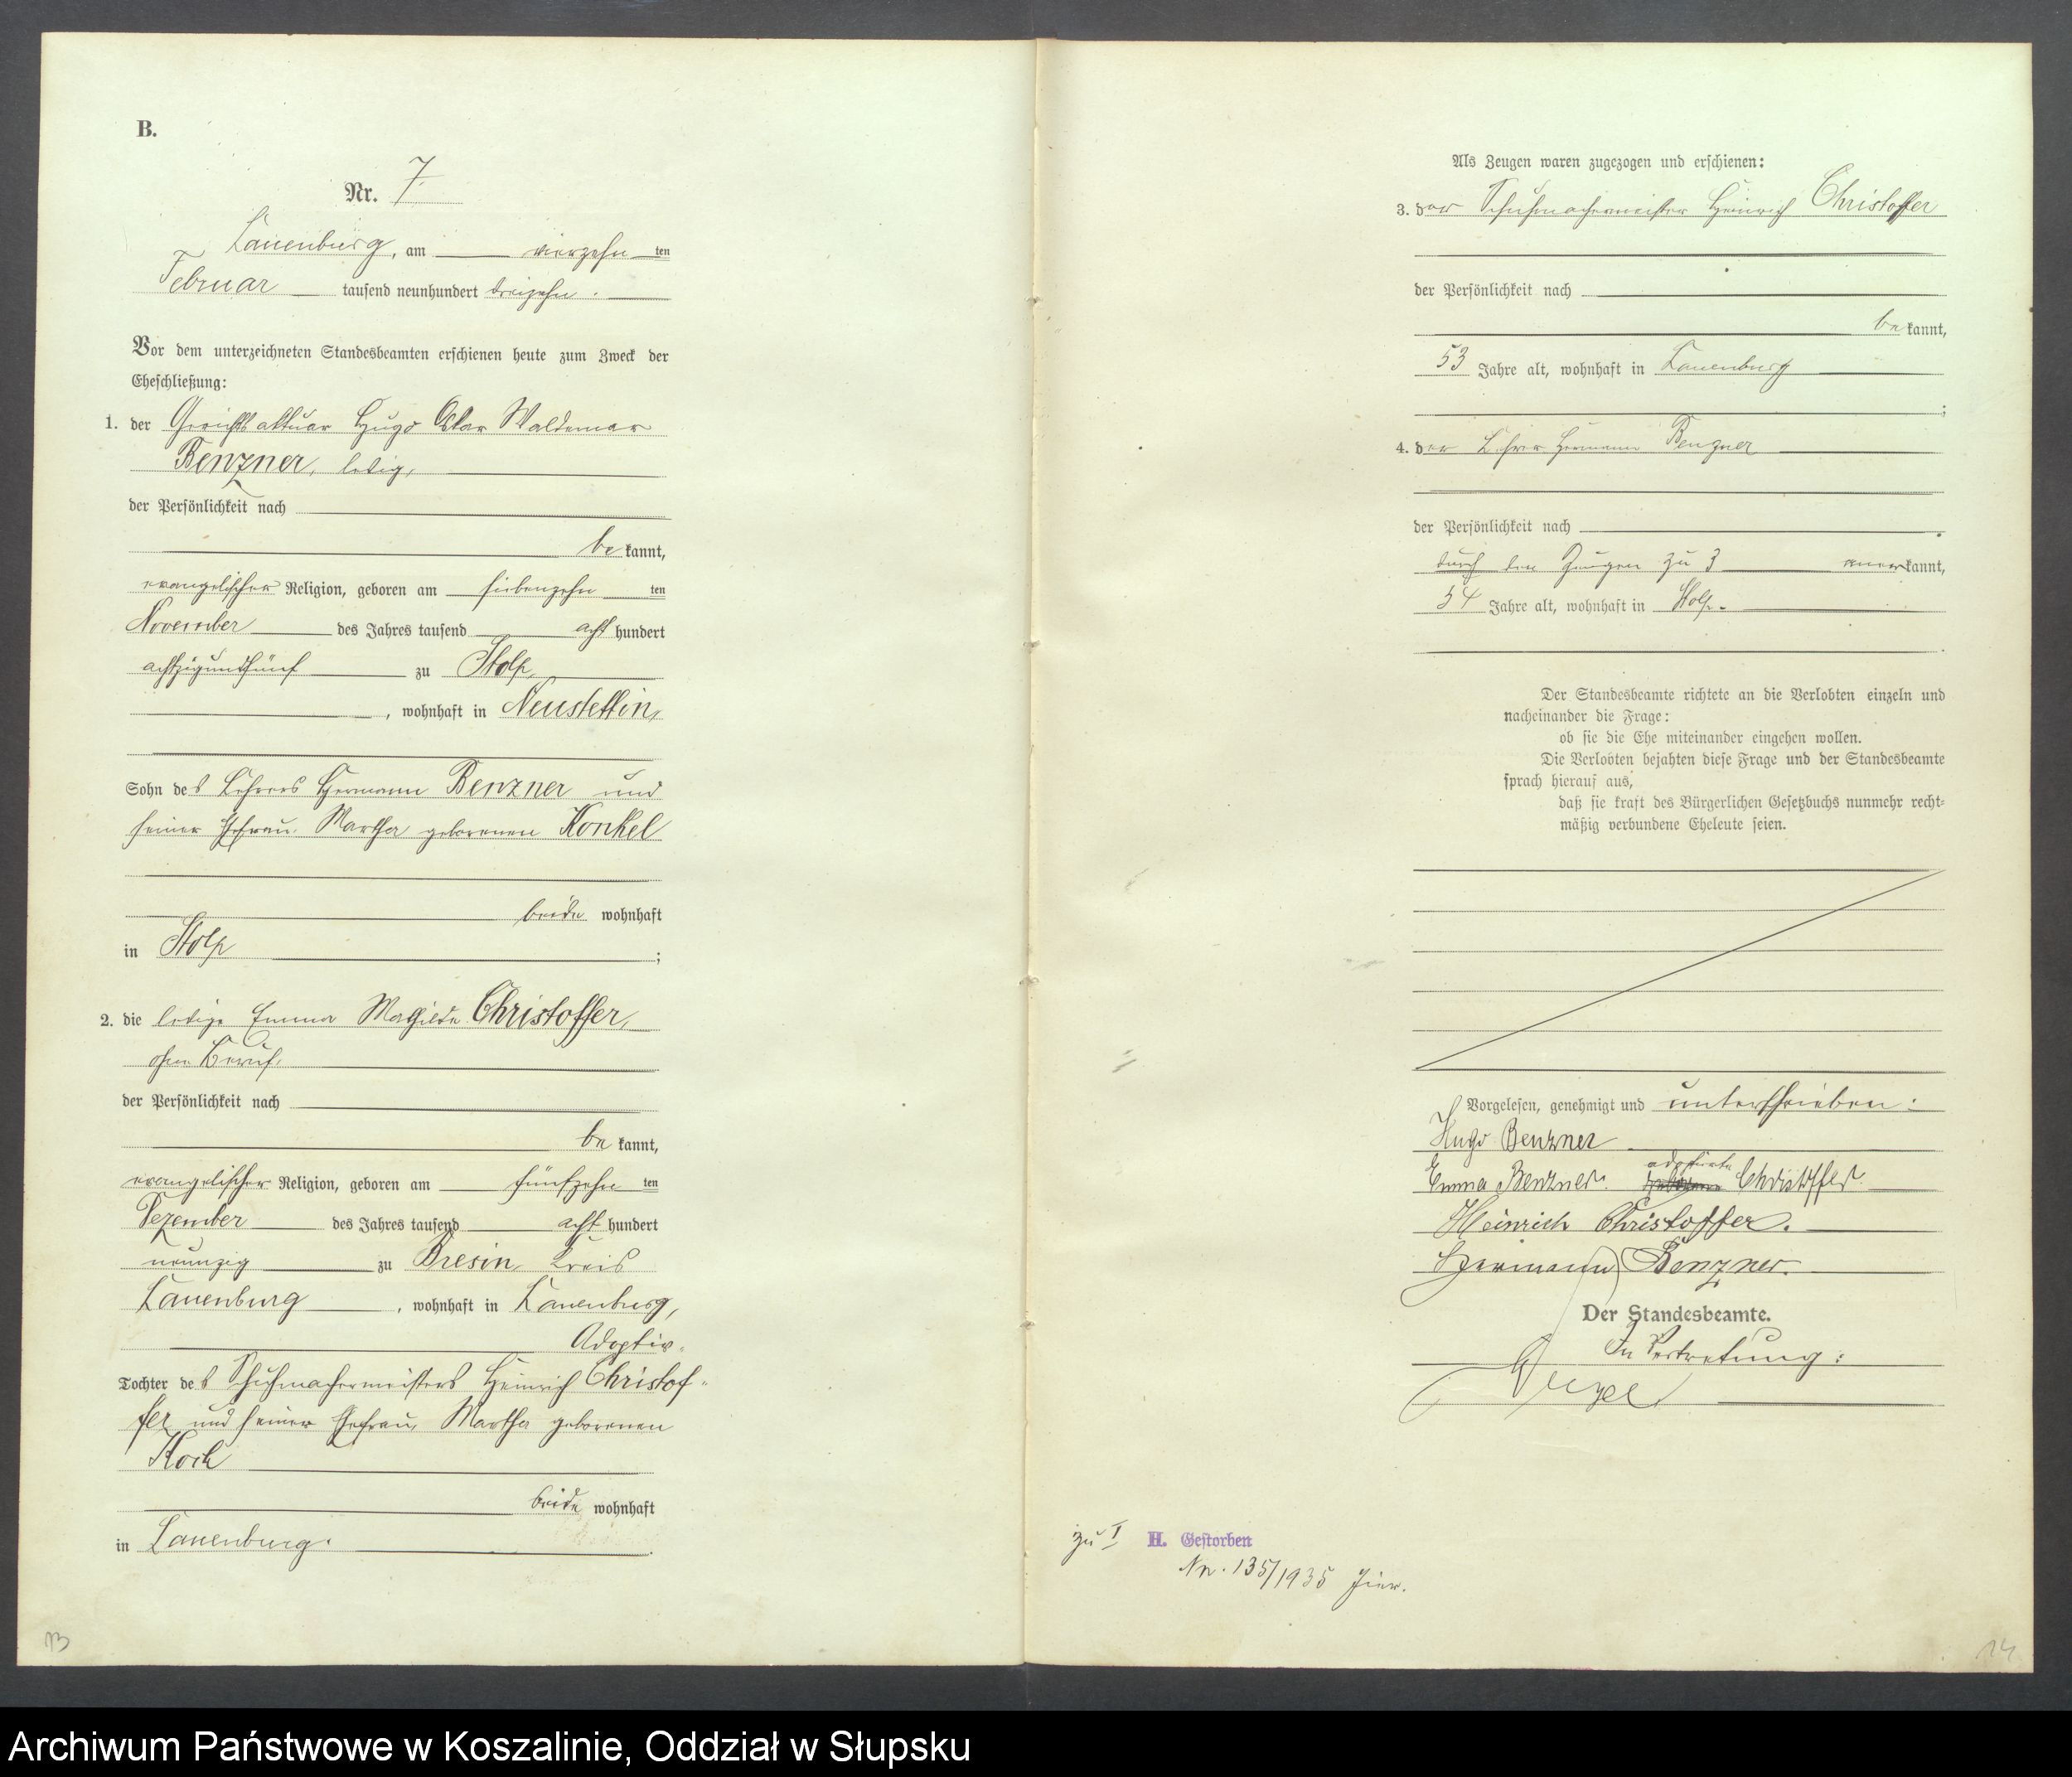 B.
Nr. 7.
Lauenburg, am vierzehn ten
Februar tausend neunhundert dreizehn.
Vor dem unterzeichneten Standesbeamten erschienen heute zum Zweck der
Eheschließung:
1. der Gerichtsaktuar Hugo Oskar Waldemar
Benzner, ledig,
der Persönlichkeit nach
be kannt,
evangelischer Religion, geboren am siebenzehn ten
November des Jahres tausend acht hundert
achtzigundfünf zu Stolp,
, wohnhaft in Neustettin,
Sohn des Lehrers Hermann Benzner und
seiner Ehefrau Martha geborenen Konkel
beide wohnhaft
in Stolp ;
2. die ledige Emma Mathilde Christoffer,
ohne Beruf,
der Persönlichkeit nach
be kannt,
evangelischer Religion, geboren am fünfzehn ten
Dezember des Jahres tausend acht hundert
neunzig zu Bresin, Kreis
Lauenburg , wohnhaft in Lauenburg,
Adoptiv-
Tochter des Schuhmachermeisters Heinrich Christof-
fer und seiner Ehefrau Martha geborenen
Koch
beide wohnhaft
in Lauenburg.
13
Als Zeugen waren zugezogen und erschienen:
3. der Schuhmachermeister Heinrich Christoffer
der Persönlichkeit nach
be kannt,
53 Jahre alt, wohnhaft in Lauenburg
;
4. der Lehrer Hermann Benzner
der Persönlichkeit nach
durch den Zeugen zu 3 anerkannt,
54 Jahre alt, wohnhaft in Stolp.
Der Standesbeamte richtete an die Verlobten einzeln und
nacheinander die Frage:
ob sie die Ehe miteinander eingehen wollen.
Die Verlobten bejahten diese Frage und der Standesbeamte
sprach hierauf aus,
daß sie kraft des Bürgerlichen Gesetzbuchs nunmehr recht-
mäßig verbundene Eheleute seien.
Vorgelesen, genehmigt und unterschrieben:
Hugo Benzner
adoptierte
Emma Benzner geborene Christoffer.
Heinrich Christoffer.
Hermann Benzner.
Der Standesbeamte.
In Vertretung:
zu I H. Gestorben
Nr. 135/1935 hier.
14
Archiwum Państwowe w Koszalinie, Oddział w Słupsku